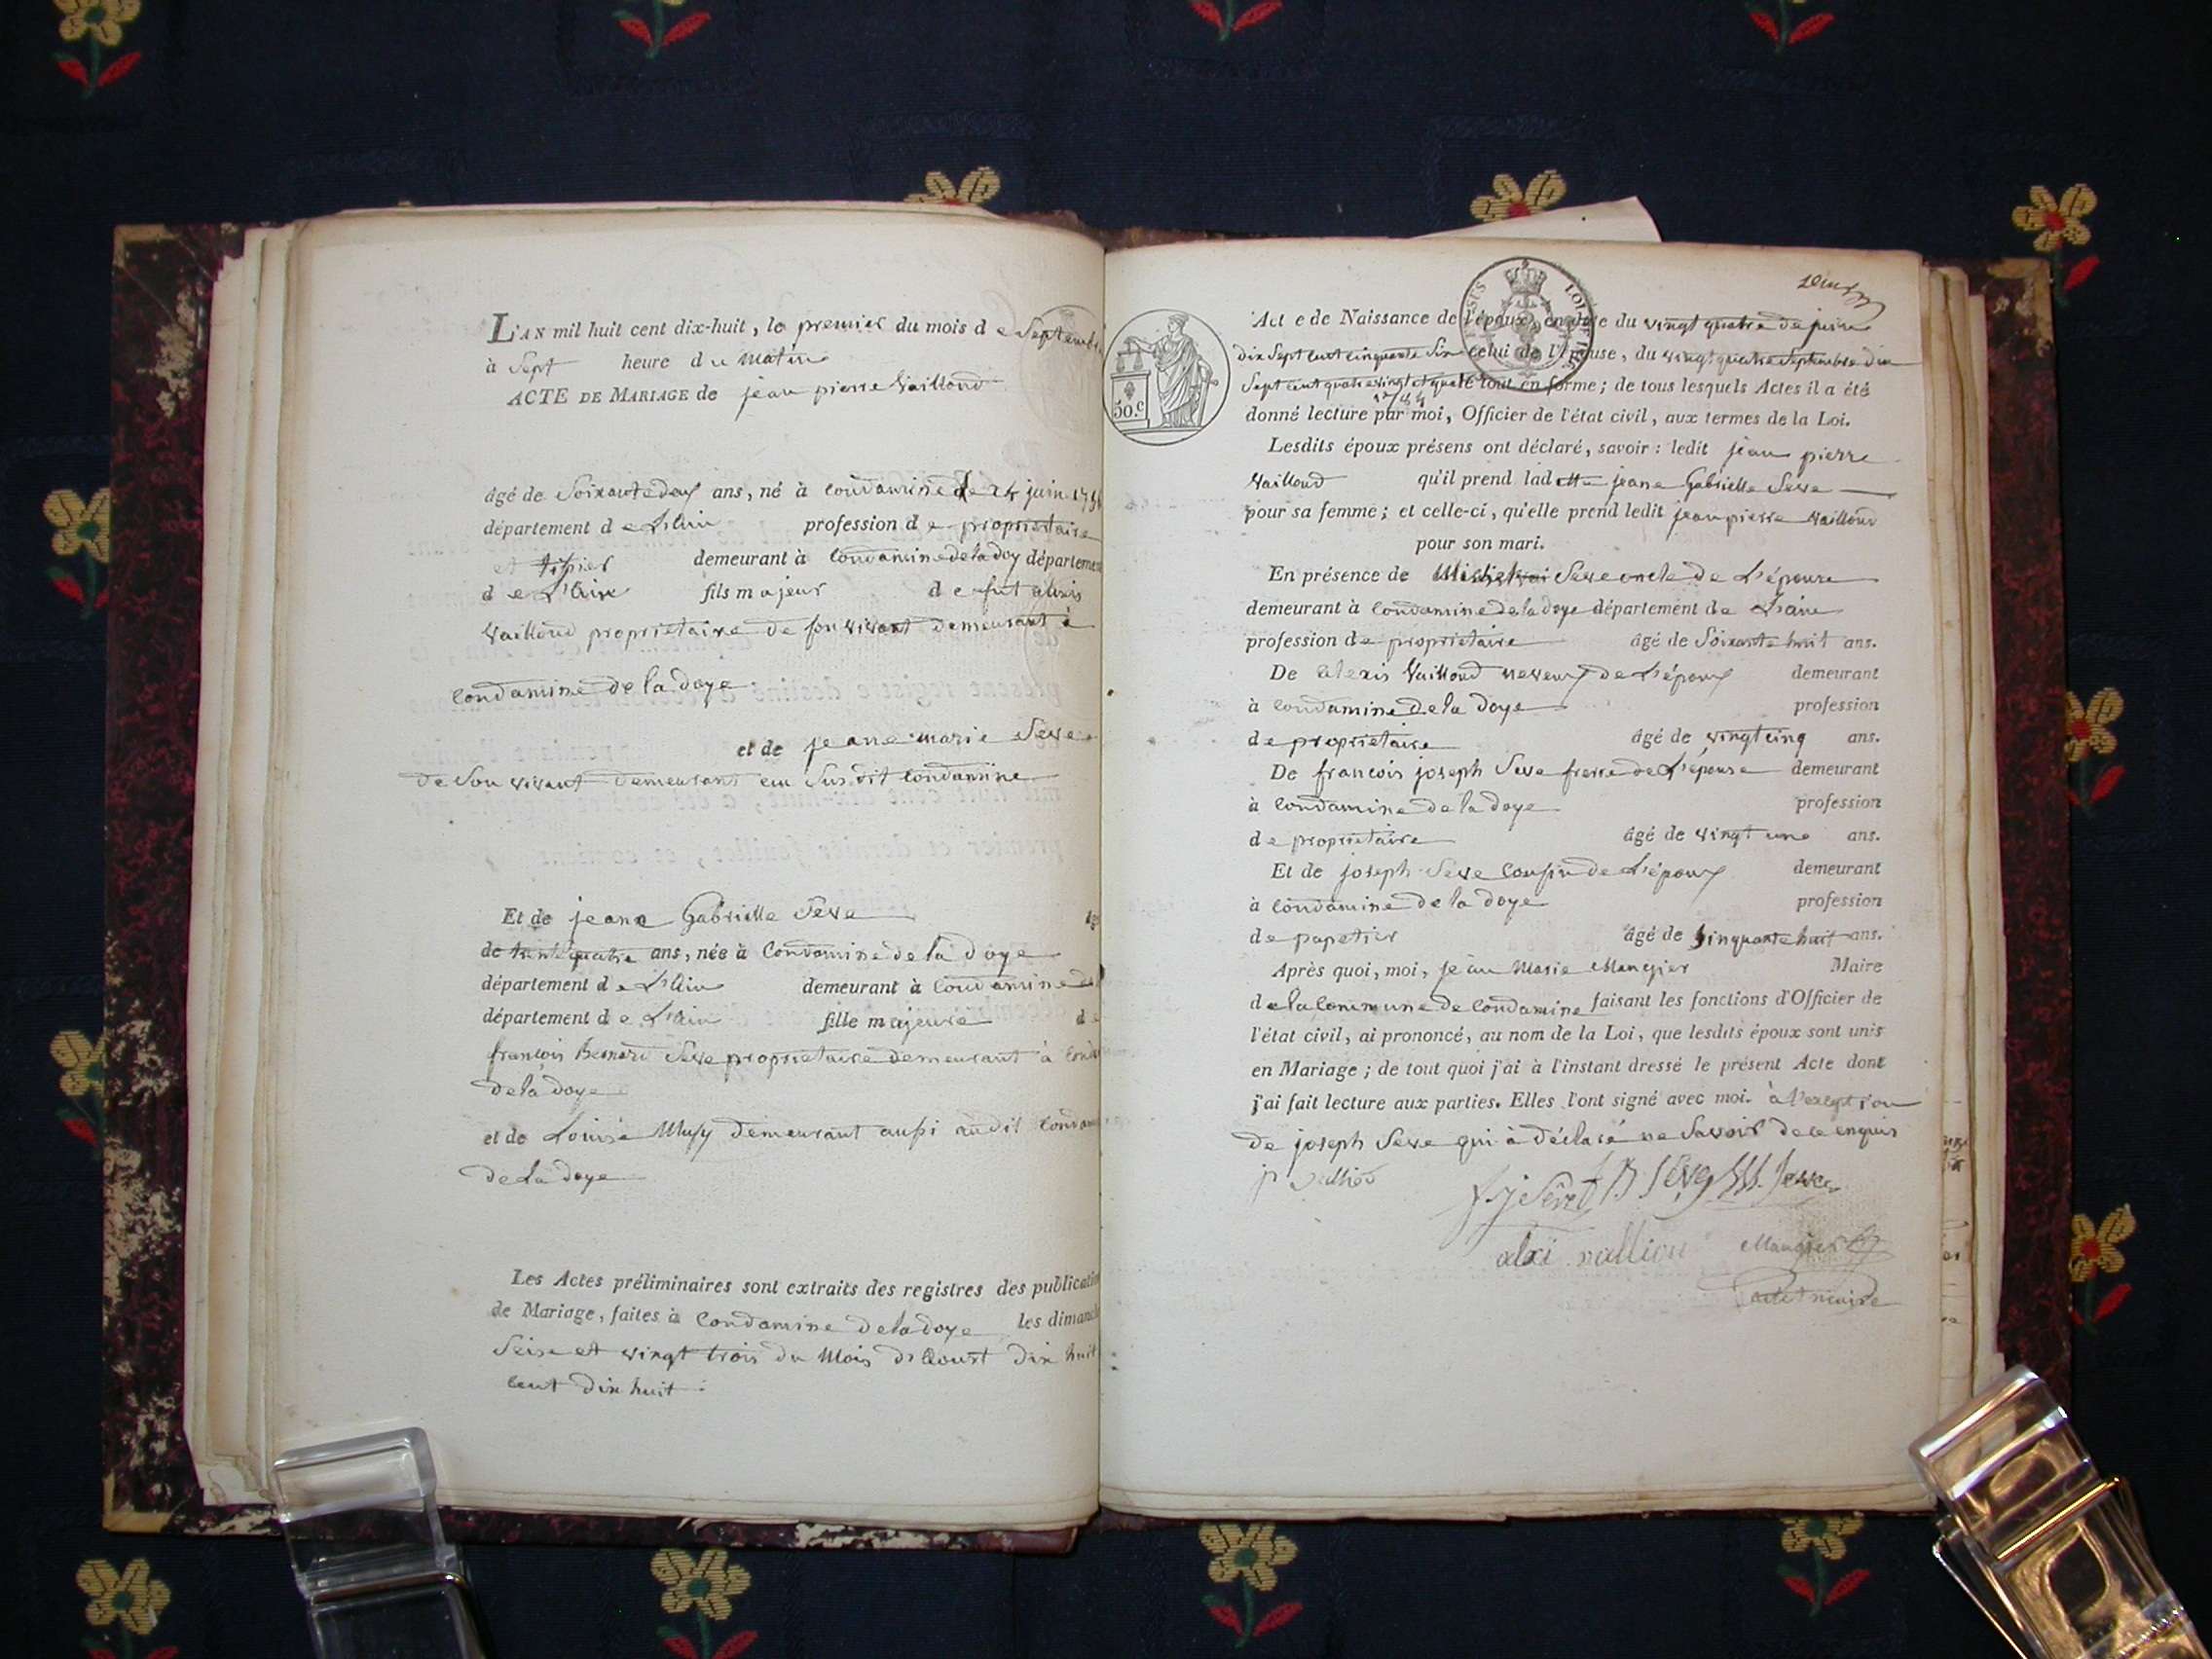 L'AN mil huit cent dix-huit, le premier du mois de Septembre
à Sept heure du matin
ACTE DE MARIAGE de jean pierre Vailloud
âgé de Soixante deux ans, né à Condamine le 24 juin
département de L'Ain profession de propriétaire
et demeurant à Condamine de la doy département
de L'Ain fils majeur de fut alexis
Vailloud propriétaire de son vivant demeurant à
Condamine de la doye
et de jeane marie Seve
de Son vivant demeurant au Susdit Condamine
Et de jeane Gabrielle Seve
de trente quatre ans, née à Condamine de la doye
département de L'Ain demeurant à Condamine
département de L'Ain fille majeure de
françois Bernard Seve propriétaire demeurant à
de la doye
et de Louise Musy demeurant aussi audit
de La doye
Les Actes préliminaires sont extraits des registres des publications
de Mariage, faites à Condamine de la doye les dimanches
Seise et vingt trois du Mois d'aoust dix huit
cent dix huit
50.c
Acte de Naissance de l'époux, en date du vingt quatre de juin
dix Sept cent cinquante Six celui de l'épouse, du vingt quatre Septembre dix
Sept cent quatre vingt et quatre tout en forme; de tous lesquels Actes il a été
1784
donné lecture par moi, Officier de l'état civil, aux termes de la Loi.
Lesdits époux présens ont déclaré, savoir: ledit jean pierre
Vailloud qu'il prend ladite jeane Gabrielle Seve
pour sa femme; et celle-ci, qu'elle prend ledit jean pierre Vailloud
pour son mari.
En présence de Seve oncle de L'épouse
demeurant à Condamine de la doye département de L'ain
profession de propriétaire âgé de Soixante huit ans.
De alexis Vailloud neveux de L'époux demeurant
à Condamine de la doye profession
de propriétaire âgé de vingt cinq ans.
De francois joseph Seve frerre de L'épouse demeurant
à Condamine de la doye profession
de propriétaire âgé de vingt une ans.
Et de joseph Seve Cousin de L'époux demeurant
à Condamine de la doye profession
de papetier âgé de Cinquante huit ans.
Après quoi, moi, jean Marie Mangier Maire
de la Commune de Condamine faisant les fonctions d'Officier de
l'état civil, ai prononcé, au nom de la Loi, que lesdits époux sont unis
en Mariage; de tout quoi j'ai à l'instant dressé le présent Acte dont
j'ai fait lecture aux parties. Elles l'ont signé avec moi. à l'exeption
de joseph Seve qui à déclaré ne Savoir de ce enquis
Mangier